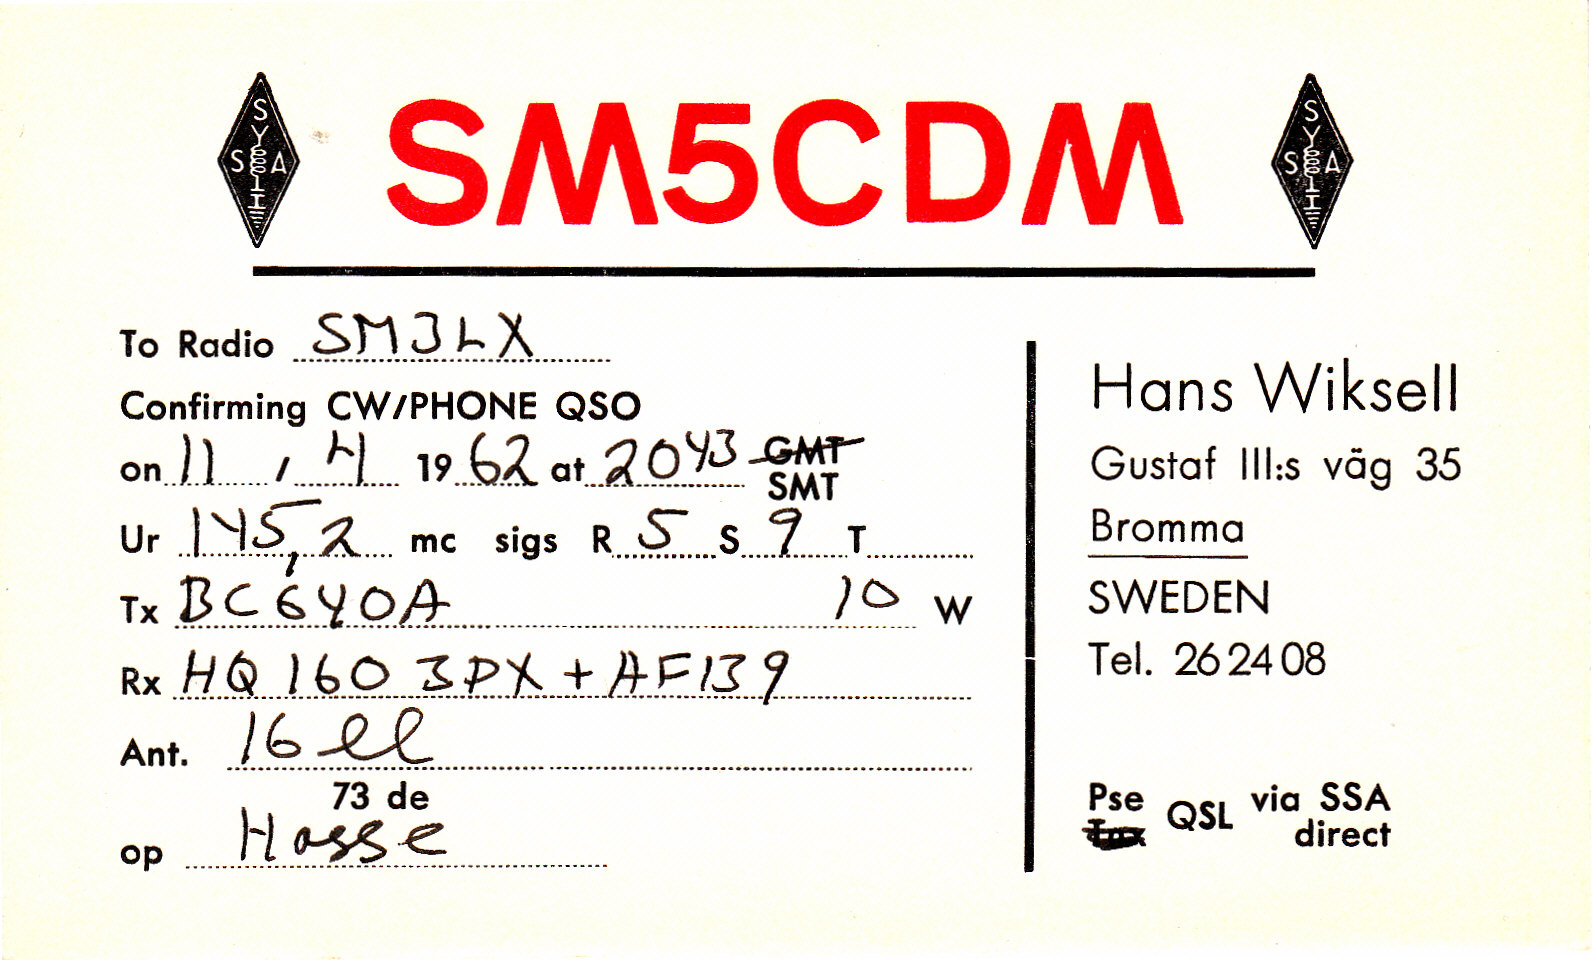 SM5CDM
S
Y
S A
L
I
S
Y
S A
L
I
To Radio SM3LX
Confirming CW/PHONE QSO
on 11 / 4 1962 at 2043 GMT
SMT
Ur 145,2 mc sigs R 5 S 9 T
Tx BC640A 10 W
Rx HQ 160 3PX + AF139
Ant. 16 ell
73 de
op Hasse
Hans Wiksell
Gustaf III:s väg 35
Bromma
SWEDEN
Tel. 26 24 08
Pse QSL via SSA
Tnx direct